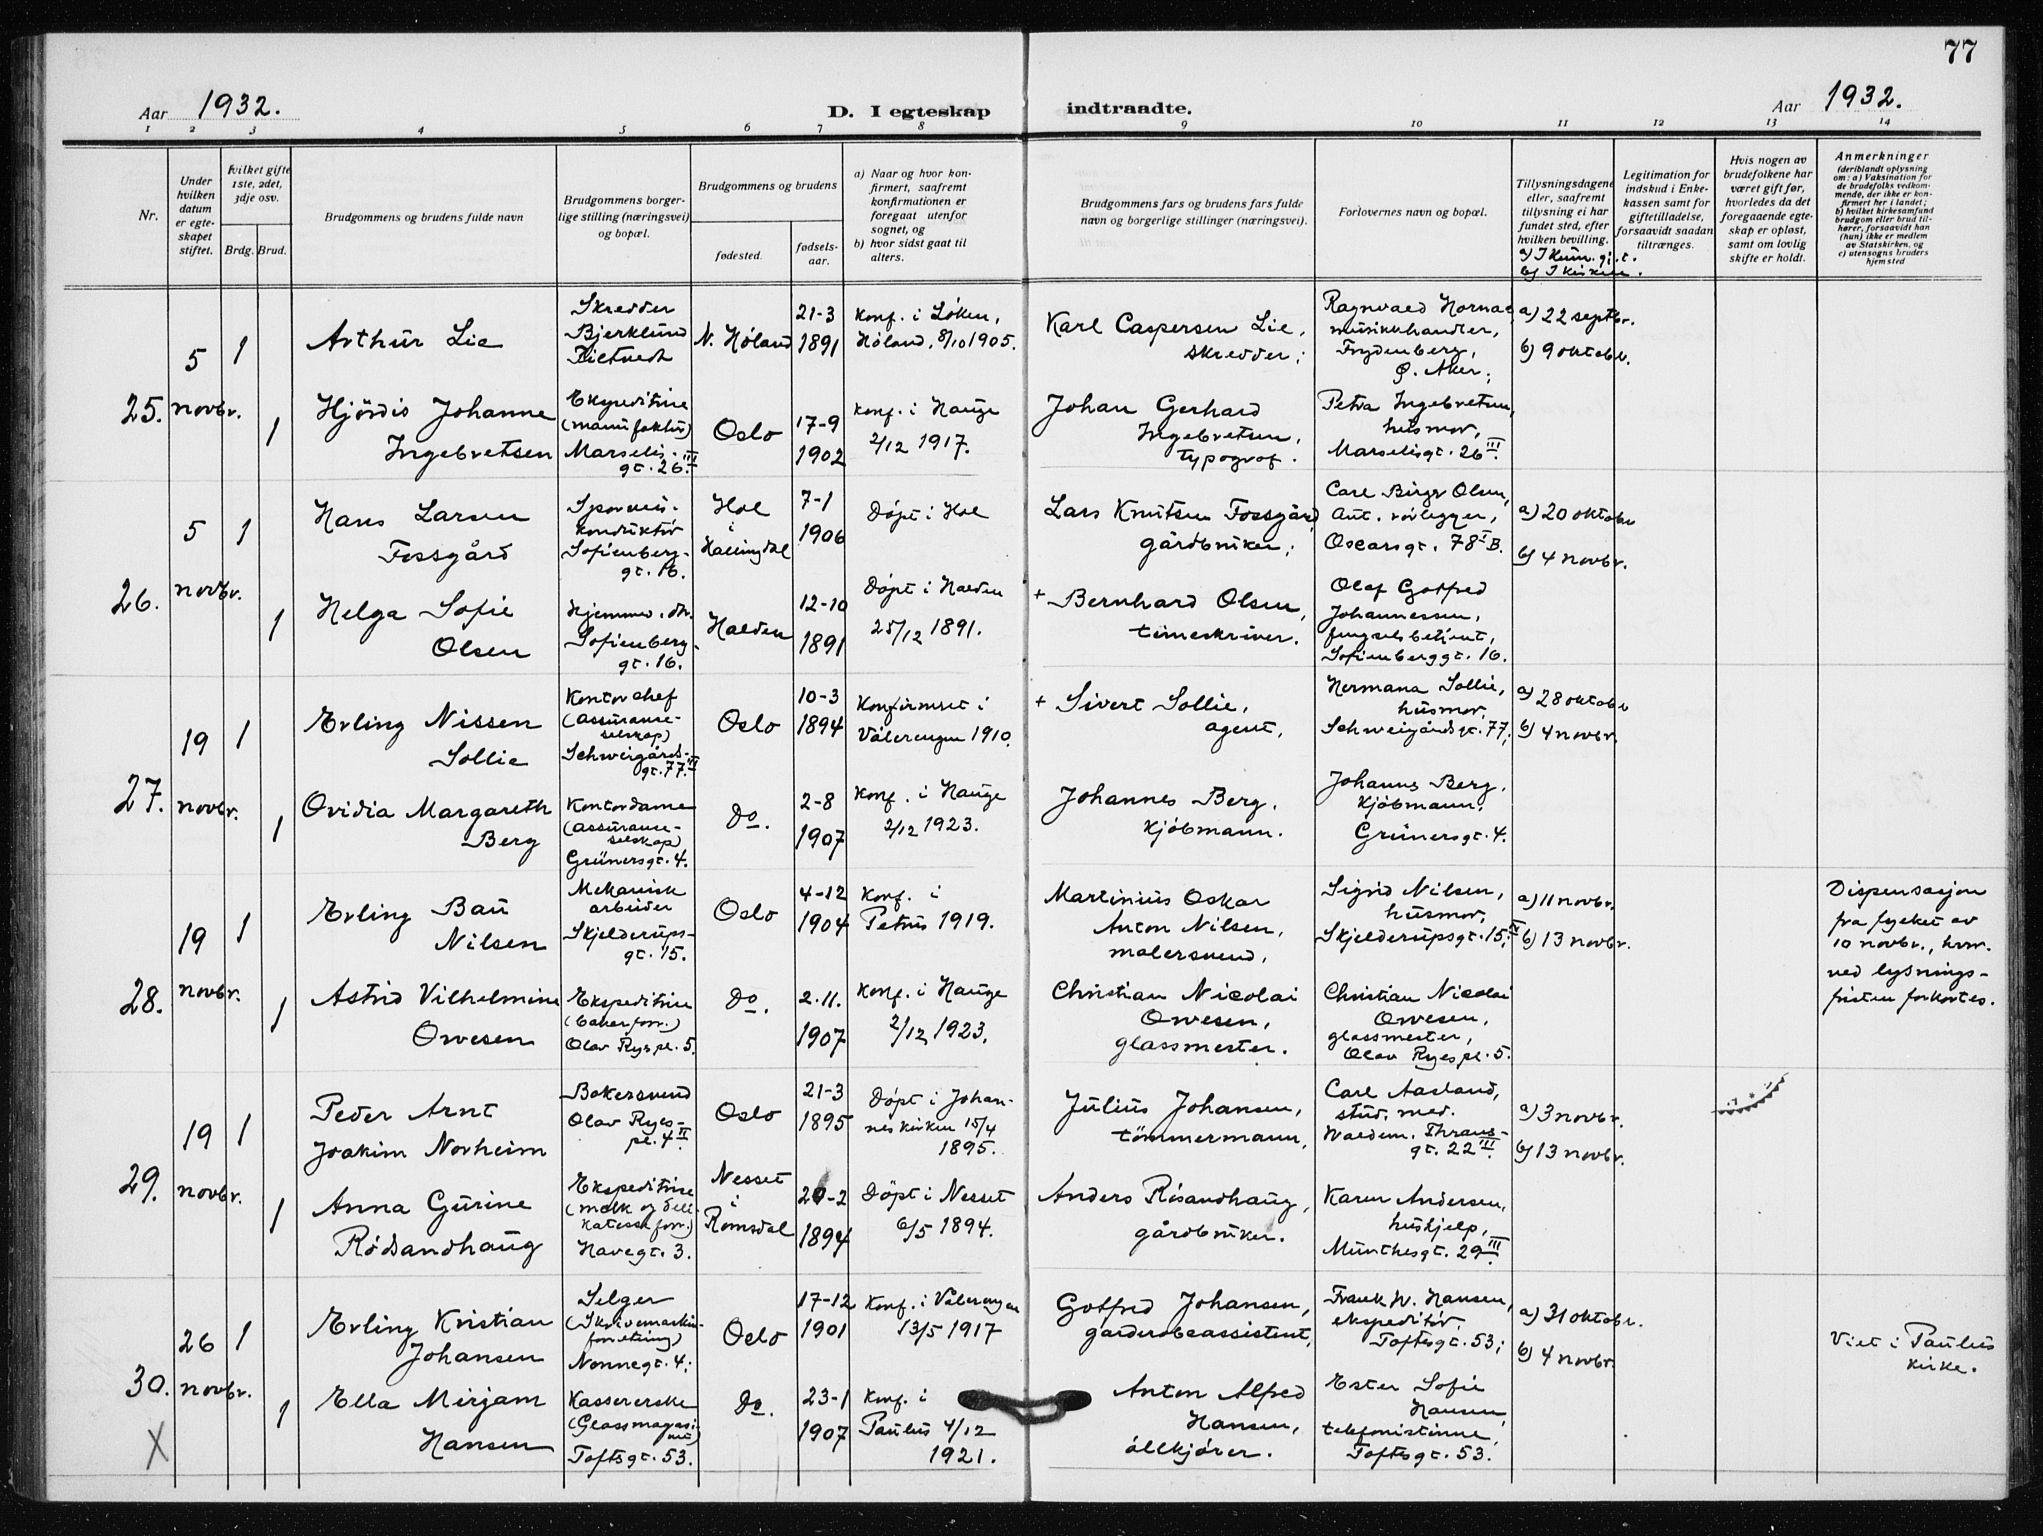 77
Aar 1932.
D. I egteskap indtraadte.
Aar 1932.
1 2 3 4 5 6 7 8 9 10 11 12 13 14
Nr.
Under hvilken datum er egteskapet stiftet.
hvilket gifte 1ste, 2det, 3dje osv.
Brdg. Brud.
Brudgommens og brudens fulde navn
Brudgommens borgerlige stilling (næringsvei) og bopæl.
Brudgommens og brudens
fødested.
fødselsaar.
a) Naar og hvor konfirmert, saafremt konfirmationen er foregaat utenfor sognet, og
b) hvor sidst gaat til alters.
Brudgommens fars og brudens fars fulde navn og borgerlige stillinger (næringsvei).
Forlovernes navn og bopæl.
Tillysningsdagene eller, saafremt tillysning ei har fundet sted, efter hvilken bevilling.
a) I Kom. g.t.
b) I kirken.
Legitimation for indskud i Enkekassen samt for giftetilladelse, forsaavidt saadan tiltrænges.
Hvis nogen av brudefolkene har været gift før, hvorledes da det foregaaende egteskap er opløst, samt om lovlig skifte er holdt.
Anmerkninger
(deriblandt oplysning om: a) Vaksination for de brudefolks vedkommende, der ikke er konfirmert her i landet; b) hvilket kirkesamfund brudgom eller brud tilhører, forsaavidt han (hun) ikke er medlem av Statskirken, og c) utensogns bruders hjemsted
25.
5
novbr.
1
Arthur Lie
Skredder
Bjerklund
N. Høland
21-3
1891
Konf. i Løken,
Høland, 8/10 1905.
Karl Caspersen Lie,
skredder;
Ragnvald
musikkhandler,
Frydenberg,
Ø. Aker;
a) 22 septbr.
b) 9 oktobr.
1
Hjördis Johanne
Ingebretsen
Ekspeditrise
(manufaktur)
Marselis-
gt. 26 III
Oslo
17-9
1902
Konf. i Hauge
2/12 1917.
Johan Gerhard
Ingebretsen,
typograf.
Petra Ingebretsen,
husmor,
Marselisgt. 26 III.
26.
5
novbr.
1
Hans Larsen
Fossgård
Sporveis-
konduktør
Sofienberg-
gt. 16.
Hol
i
Hallingdal
7-1
1906
Døpt i Hol
Lars Knutsen Fossgård
gårdbruker;
Carl Birger Olsen,
Aut. rørlegger,
Oscarsgt. 78 I B.
a) 20 oktobr
b) 4 novbr.
1
Helga Sofie
Olsen
Hjemmev. dtr.
Sofienberg-
gt. 16.
Halden
12-10
1891
Døpt i Halden
25/12 1891.
+ Bernhard Olsen,
timeskriver.
Olaf Gotfred
Johannessen,
fengselsbetjent,
Sofienberggt. 16.
27.
19
novbr.
1
Erling Nissen
Sollie
Kontorchef
(assuranse-
selskap)
Schweigårds-
gt. 77. IV
Oslo
10-3
1894
Konfirmert i
Vålerengen 1910.
+ Sivert Sollie,
agent,
Hermana Sollie,
husmor,
Schweigårdsgt. 77;
a) 28 oktobr
b) 4 novbr.
1
Ovidia Margareth
Berg
Kontordame
(assuranse-
selskap)
Grünersgt. 4.
Do.
2-8
1907
Konf. i Hauge
2/12 1923.
Johannes Berg,
Kjöbmann.
Johannes Berg,
Kjöbmann,
Grünersgt. 4.
28.
19
novbr.
1
Erling Bau
Nilsen
Mekanisk
arbeider
Skjelderups-
gt. 15.
Oslo
4-12
1904
Konf. i
Petrus 1919.
Martinius Oskar
Anton Nilsen,
malersvend,
Sigrid Nilsen,
husmor,
Skjelderupsgt. 15, IV
a) 11 novbr.
b) 13 novbr.
Dispensasjon
fra fylket av
10 novbr., hvor-
ved lysnings-
fristen forkortes.
1
Astrid Vilhelmine
Orvesen
Ekspeditrise
(bakerforr.)
Olav Ryes pl. 5.
Do.
2.11.
1907
Konf. i Hauge
2/12 1923.
Christian Nicolai
Orvesen,
glassmester.
Christian Nicolai
Orvesen,
glassmester,
Olav Ryes pl. 5.
29.
19
novbr.
1
Peder Arnt
Joakim Norheim
Bakersvend
Olav Ryes-
pl. 4 II
Oslo
21-3
1895
Døpt i Johan-
neskirken 15/4
1895.
Julius Johansen,
tömmermann,
Carl Aasland,
stud. med.
Waldem. Thranes-
gt. 22 III.
a) 3 novbr.
b) 13 novbr.
1
Anna Gurine
Rödsandhaug
Ekspeditrise
(melk og deli-
katesseforr.)
Havegt. 3.
Nesset
i
Romsdal
20-2
1894
Døpt i Nesset
6/5 1894.
Anders Rösandhaug,
gårdbruker.
Karen Andersen,
hushjelp,
Munthesgt. 29 III.
30.
X
26
novbr.
1
Erling Kristian
Johansen
Selger
(Skrivemaskin-
forretning)
Nonnegt. 4;
Oslo
17-12
1901
Konf. i Vålerengen
13/5 1917
Gotfred Johansen,
garderobeassistent,
Frank W. Hansen,
ekspeditör,
Toftesgt. 53;
a) 31 oktobr.
b) 4 novbr.
Viet i Paulus
kirke.
1
Ella Mirjam
Hansen
Kassererske
(Glassmagasi-
net)
Toftesgt. 53.
Do.
23-1
1907
Konf. i
Paulus 4/12
1921.
Anton Alfred
Hansen,
ölkjörer.
Ester Sofie
Hansen,
telefonistinne,
Toftesgt. 53.